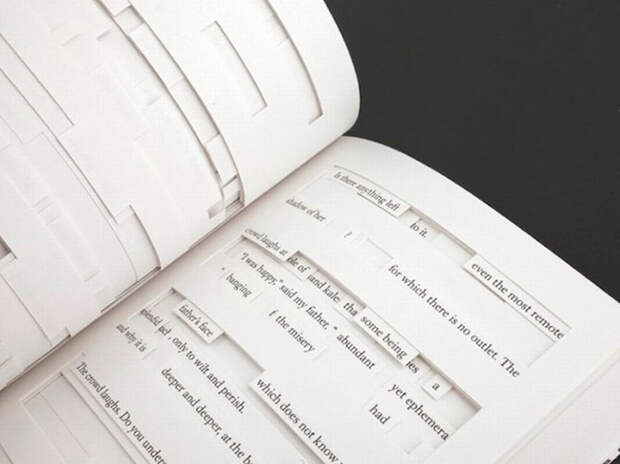 Is there anything left to it. even the most remote
shadow of her for which there is no outlet. The
crowd laughs at and kale tha some being es a
"I was happy," said my father, " abundant yet ephemera
hanging f the misery had
father's face which does not know
splendid , only to wilt and perish.
and why it is deeper and deeper, at the b
The crowd laughs. Do you unders